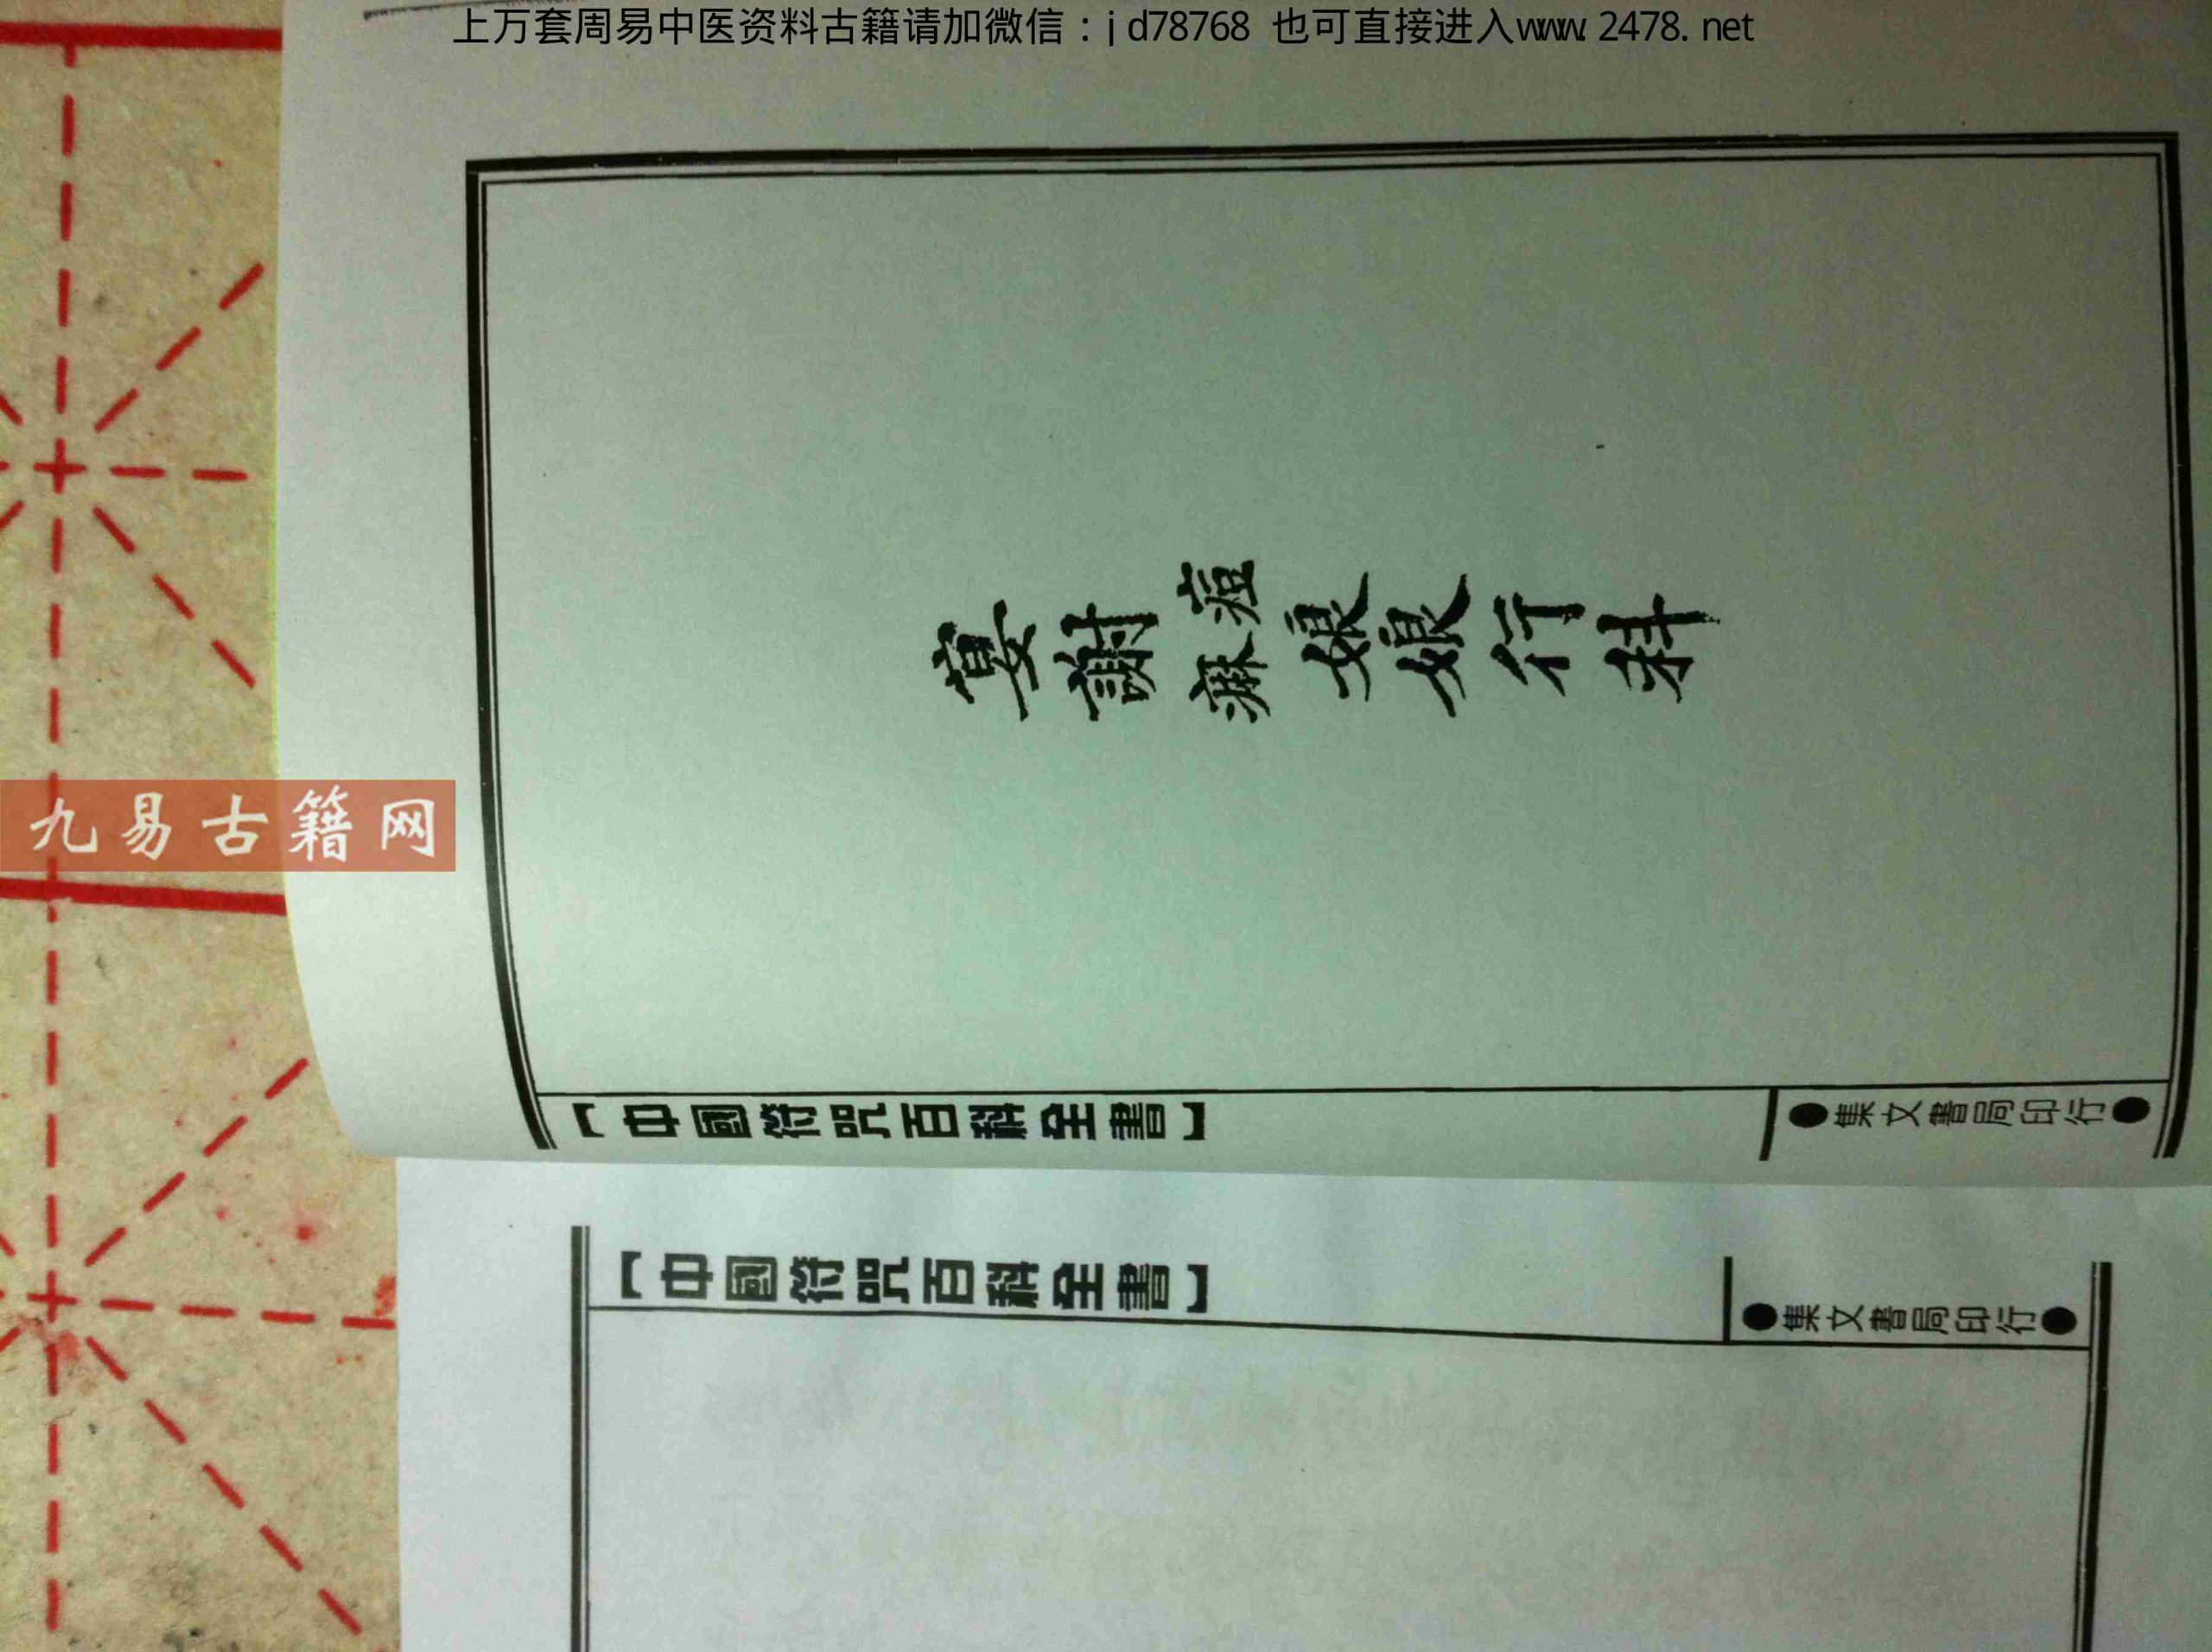 上万套周易中医资料古籍请加微信：jd78768 也可直接进入www.2478.net
謝痘痳娘娘行科
九易古籍网
【中國符咒百科全書】
●集文書局印行●
【中國符咒百科全書】
●集文書局印行●